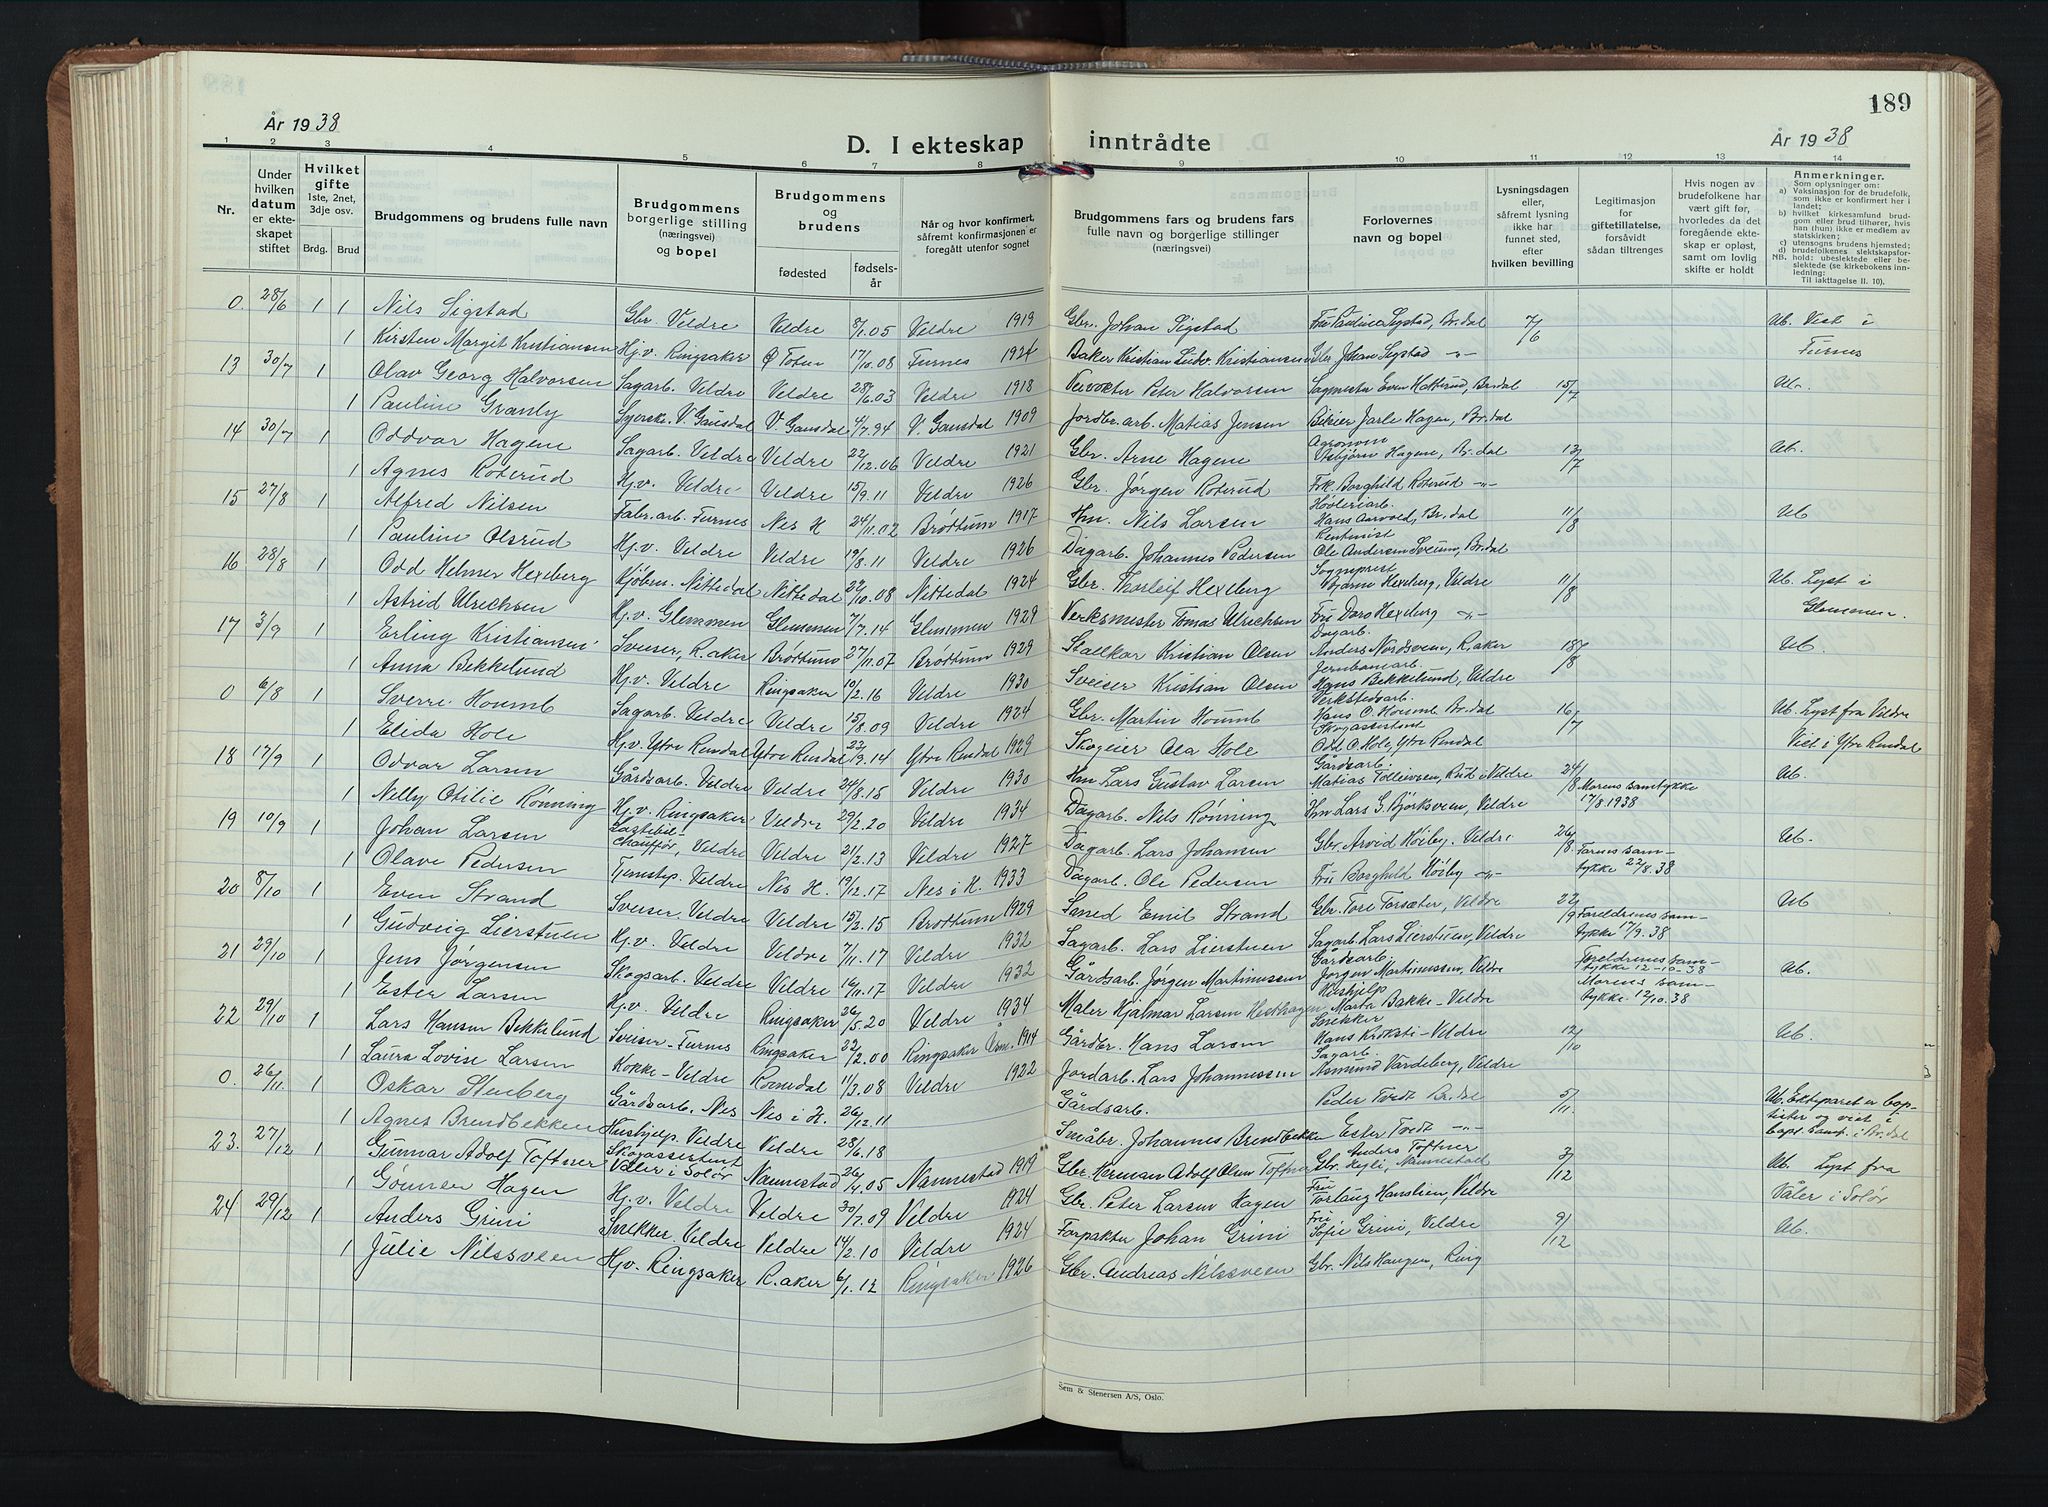 189
År 1938
D. I ekteskap inntrådte
År 1938
1 2 3 4 5 6 7 8 9 10 11 12 13 14
Nr.
Under hvilken datum er ekteskapet stiftet
Hvilket gifte 1ste, 2net, 3dje osv.
Brdg. Brud
Brudgommens og brudens fulle navn
Brudgommens borgerlige stilling (næringsvei) og bopel
Brudgommens og brudens
fødested
fødselsår
Når og hvor konfirmert, såfremt konfirmasjonen er foregått utenfor sognet
Brudgommens fars og brudens fars fulle navn og borgerlige stillinger (næringsvei)
Forlovernes navn og bopel
Lysningsdagen eller, såfremt lysning ikke har funnet sted, efter hvilken bevilling
Legitimasjon for giftetillatelse, forsåvidt sådan tiltrenges
Hvis nogen av brudefolkene har vært gift før, hvorledes da det foregående ekteskap er opløst, samt om lovlig skifte er holdt
Anmerkninger.
Som oplysninger om:
a) Vaksinasjon for de brudefolk, som ikke er konfirmert her i landet;
b) hvilket kirkesamfund brudgom eller brud tilhører, hvis han (hun) ikke er medlem av statskirken;
c) utensogns brudens hjemsted;
d) brudefolkenes slektskapsforhold: ubeslektede eller beslektede (se kirkebokens innledning:
NB. Til iakttagelse II. 10).
0. 28/6 1 1 Nils Sigstad Gbr. Veldre Veldre 8/1.05 Veldre 1919 Gbr. Johan Sigstad Fru Pauline Sigstad, Br.dal 7/6 Ub. Viet i
1 Kirsten Margit Kristiansen Hj.v. Ringsaker Ø Toten 17/10.08 Furnes 1924 Baker Kristian Ludv. Kristiansen Gbr Johan Sigstad -"- Furnes
13 30/7 1 Olav Georg Halvorsen Sagarb. Veldre Veldre 28/6.03 Veldre 1918 Veivokter Peter Halvorsen Sagmester Even Hatterud, Br.dal 15/7 Ub.
1 Pauline Granly Syerske V. Gausdal V Gausdal 4/7.94 V. Gausdal 1909 Jordbr. arb. Matias Jensen Jarle Hagen, Br.dal
14 30/7 1 Oddvar Hagene Sagarb. Veldre Veldre 22/12.06 Veldre 1921 Gbr. Arne Hagene Agronom Asbjørn Hagene, Br.dal 13/7 Ub.
1 Agnes Roterud Hj.v. Veldre Veldre 15/9.11 Veldre 1926 Gbr. Jørgen Roterud Frk Borghild Roterud -"-
15 27/8 1 Alfred Nilsen Fabr.arb. Furnes Nes H 24/11.02 Brøttum 1917 Hm. Nils Larsen Høvleriarb. Hans Aarvold, Br.dal 11/8 Ub
1 Pauline Olsrud Hj.v. Veldre Veldre 19/8.11 Veldre 1926 Dagarb. Johannes Pedersen Rentenist Ole Andersen Sveum, Br.dal
16 28/8 1 Odd Helmer Hexeberg Kjøbm. Nittedal Nittedal 22/10.08 Nittedal 1924 Gbr. Thorleif Hexeberg Sogneprest Bjarne Hexeberg, Veldre 11/8 Ub. Lyst i
1 Astrid Ulrechsen Hj.v. Glemmen Glemmen 7/7.14 Glemmen 1929 Verksmester Tomas Ulrichsen Fru Doro Hexeberg -"- Glemmen
17 3/9 1 Erling Kristiansen Sveiser, R.aker Brøttum 27/11.07 Brøttum 1929 Stallkar Kristian Olsen Dagarb. Anders Nordsveen, R.aker 15/8 Ub.
1 Anna Bekkelund Hj.v. Veldre Ringsaker 10/2.16 Veldre 1930 Sveiser Kristian Olsen Jernbanearb. Hans Bekkelund, Veldre
0 6/8 1 Sverre Houmb Sagarb. Veldre Veldre 15/8.09 Veldre 1924 Gbr. Martin Houmb Verkstedsarb. Hans C. Houmb Br.dal 16/7 Ub. Lyst fra Veldre
1 Elida Hole Hj.v. Ytre Rendal Ytre Rendal 23/9.14 Ytre Rendal 1929 Skogeier Ola Hole Skogassistent Odd O. Hole, Ytre Rendal Viet i Ytre Rendal
18 17/9 1 Odvar Larsen Gårdsarb. Veldre Veldre 24/8.15 Veldre 1930 Hm Lars Gustav Larsen Gårdsarb. Matias Tollevsen, Veldre 24/8 Morens samtykke Ub.
1 Nelly Otilie Rønning Hj.v. Ringsaker Veldre 29/2.20 Veldre 1934 Dagarb. Nils Rønning Hm Lars G. Bjørksveen, Veldre 17/8 1938
19 10/9 1 Johan Larsen Lastebilchauffør, Veldre Veldre 21/2.13 Veldre 1927 Dagarb. Lars Johansen Gbr. Arvid Høiby. Veldre 26/8. Farens sam- Ub.
1 Olave Pedersen Tjenstep. Veldre Nes H. 19/12.17 Nes i H. 1933 Dagarb. Ole Pedersen Fru Borghild Høiby -"- tykke 22/8.38
20 8/10 1 Even Strand Sveiser Veldre Veldre 15/2.15 Brøttum 1929 Smed Emil Strand Gbr. Tore Torsæter, Veldre 22/9 Foreldrenes sam- Ub
1 Gudveig Lierstuen Hj.v. Veldre Veldre 7/11.17 Veldre 1932 Sagarb. Lars Lierstuen Sagarb. Lars Lierstuen, Veldre tykke 17/9.38
21 29/10 1 Jens Jørgensen Skogsarb. Veldre Veldre 16/11.17 Veldre 1932 Gårdsarb. Jørgen Martinussen Gårdsarb. Jørgen Martinussen, Veldre Foreldrenes samtykke 12-10-38 Ub.
1 Ester Larsen Hj.v. Veldre Ringsaker 26/5.20 Veldre 1934 Maler Hjalmar Larsen Hestehagen Hushjelp Marta Bakke - Veldre Morens samtykke 12/10.38
22 29/10 1 Lars Hansen Bekkelund Sveiser - Furnes Ringsaker 22/2.00 Ringsaker 1914 Gårdbr. Hans Larsen Snekker Hans Kroksti - Veldre 12/10 Ub.
1 Laura Lovise Larsen Kokke - Veldre Romedal 11/3.08 Veldre 1922 Jordarb. Lars Johannessen Sagarb. Asmund Vardeberg, Veldre
0. 26/11. 1 Oskar Stenberg Gårdsarb. Nes Nes i H. 26/12.11 Gårdsarb. Peder Tvedt Br.dal 5/11. Ub. Ekteparet er bap-
1 Agnes Brendbekken Hushjelp. Veldre Veldre 28/6.18 Småbr. Johannes Brendbekken Ester Tvedt -"- tister og viet i bapt. samf. i Br.dal
23. 27/12 1 Gunnar Adolf Toftner Skogassistent Våler i Solør Nannestad 26/4.05 Nannestad 1919 Gbr. Herman Adolf Olsen Toftner Anders Toftner Gbr. Nannestad 3/12 Ub. Lyst fra
1 Gønnev Hagen Hj.v. Veldre Veldre 30/7.09 Veldre 1924 Gbr. Peter Larsen Hagen Fru Torlaug Hanslien, Veldre Våler i Solør
24 29/12 1 Anders Grini Snekker. Veldre Veldre 14/2.10 Veldre 1924 Forpakter Johan Grini Fru Sofie Grini, Veldre 9/12 Ub.
1 Julie Nilssveen Hj.v. Ringsaker R.aker 6/1.12 Ringsaker 1926 Gbr. Andreas Nilssveen Gbr. Nils Haugen, Ring
Sem & Stenersen A/S, Oslo.